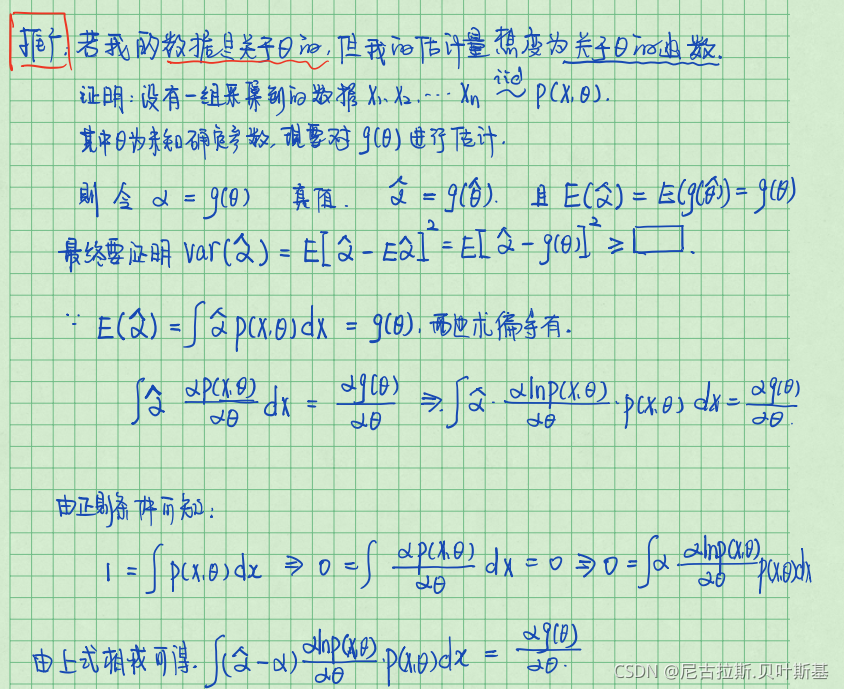 推广. 若我的数据是关于θ的, 但我的估计量想变为关于θ的函数.
证明: 设有一组采集到的数据 x₁, x₂, ⋯ xₙ iid~ p(x,θ).
其中θ为未知确定参数, 现要对 g(θ) 进行估计.
则令 α = g(θ) 真值. α̂ = g(θ̂). 且 E(α̂) = E(g(θ̂)) = g(θ)
最终要证明 var(α̂) = E[α̂ - Eα̂]² = E[α̂ - g(θ)]² ≥ □.
∵ E(α̂) = ∫ α̂ p(x,θ)dx = g(θ), 两边求偏导有.
∫ α̂ ∂p(x,θ)/∂θ dx = ∂g(θ)/∂θ ⇒ ∫ α̂ · ∂lnp(x,θ)/∂θ · p(x,θ) dx = ∂g(θ)/∂θ.
由正则条件可知:
1 = ∫ p(x,θ)dx ⇒ 0 = ∫ ∂p(x,θ)/∂θ dx = 0 ⇒ 0 = ∫ α ∂lnp(x,θ)/∂θ p(x,θ)dx
由上式相减可得. ∫(α̂-α) ∂lnp(x,θ)/∂θ · p(x,θ)dx = ∂g(θ)/∂θ.
CSDN @尼古拉斯.贝叶斯基